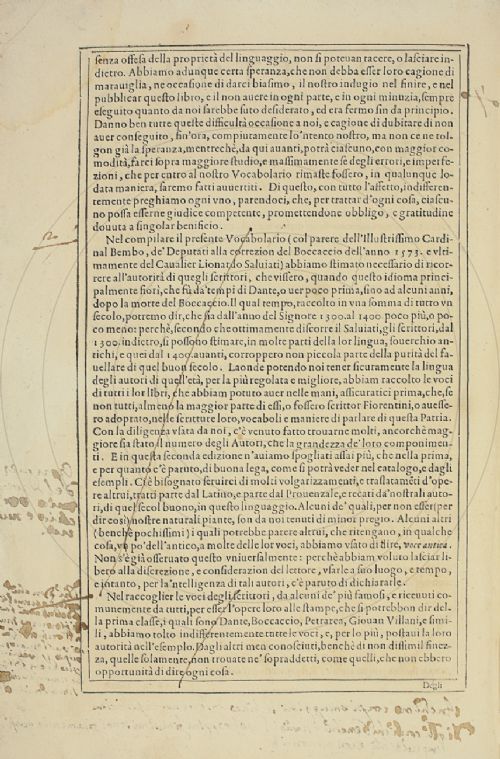 senza offesa della proprietà del linguaggio, non si poteuan tacere, o lasciare in-
dietro. Abbiamo adunque certa speranza, che non debba esser loro cagione di
marauiglia, ne occasione di darci biasimo, il nostro indugio nel finire, e nel
pubblicar questo libro, e il non auere in ogni parte, e in ogni minuzia, sempre
eseguito quanto da noi sarebbe suto desiderato, ed era fermo sin da principio.
Danno ben tutte queste difficultà occasione a noi, e cagione di dubitare di non
auer conseguito, fin'ora, compiutamente lo'ntento nostro, ma non ce ne tol-
gon già la speranza, mentrechè, da qui auanti, potrà ciascuno, con maggior co-
modità, farci sopra maggiore studio, e massimamente se degli errori, e imperfe-
zioni, che per entro al nostro Vocabolario rimaste fossero, in qualunque lo-
data maniera, saremo fatti auuertiti. Di questo, con tutto l'affetto, indifferen-
temente preghiamo ogni vno, parendoci, che, per trattar d'ogni cosa, ciascu-
no possa esserne giudice competente, promettendone obbligo, e gratitudine
douuta a singular benificio.
Nel compilare il presente Vocabolario (col parere dell'Illustrissimo Cardi-
nal Bembo, de' Deputati alla correzion del Boccaccio dell'anno 1573. e vlti-
mamente del Caualier Lionardo Saluiati) abbiamo stimato necessario di ricor-
rere all'autorità di quegli scrittori, che vissero, quando questo idioma princi-
palmente fiorì, che fù da' tempi di Dante, o uer poco prima, sino ad alcuni anni,
dopo la morte del Boccaccio. Il qual tempo, raccolto in vna somma di tutto vn
secolo, potremo dir, che sia dall'anno del Signore 1300. al 1400. poco più, o po-
co meno: perchè, secondo che ottimamente discorre il Saluiati, gli scrittori, dal
1300. indietro, si possono stimare, in molte parti della lor lingua, souerchio an-
tichi, e quei dal 1400. auanti, corroppero non piccola parte della purità del fa-
uellare di quel buon secolo. Laonde potendo noi tener sicuramente la lingua
degli autori di quell'età, per la più regolata e migliore, abbiam raccolto le voci
di tutti i lor libri, che abbiam potuto auer nelle mani, assicuratici prima, che, se
non tutti, almeno la maggior parte di essi, o fossero scrittor Fiorentini, o auesse-
ro adoprato, nelle scritture loro, vocaboli e maniere di parlare di questa Patria.
Con la diligenza vsata da noi, c'è venuto fatto trouarne molti, ancorchè mag-
giore sia stato il numero degli Autori, che la grandezza de' loro componimen-
ti. E in questa seconda edizione n'auiamo spogliati assai più, che nella prima,
e per quanto c'è paruto, di buona lega, come si potrà veder nel catalogo, e dagli
esempli. Ci è bisognato seruirci di molti volgarizzamenti, e traslatamēti d'ope-
re altrui, tratti parte dal Latino, e parte dal Prouenzale, e recati da' nostrali auto-
ri, di quel secol buono, in questo linguaggio. Alcuni de' quali, per non esser (per
dir così) nostre naturali piante, son da noi tenuti di minor pregio. Alcuni altri
(benchè pochissimi) i quali potrebbe parere altrui, che ritengano, in qualche
cosa, vn po' dell'antico, a molte delle lor voci, abbiamo vsato di dire, voce antica.
Non s'è già osseruato questo vniuersalmente: perchè abbiam voluto lasciar li-
bero alla discrezione, e considerazion del lettore, vsarle a suo luogo, e tempo,
e intanto, per la'ntelligenza di tali autori, c'è paruto di dichiararle.
Nel raccoglier le voci degli scrittori, da alcuni de' più famosi, e riceuuti co-
munemente da tutti, per esser l'opere loro alle stampe, che si potrebbon dir del-
la prima classe, i quali sono Dante, Boccaccio, Petrarca, Giouan Villani, e simi-
li, abbiamo tolto indifferentemente tutte le voci, e, per lo più, postaui la loro
autorità nell'esemplo. Dagli altri men conosciuti, benchè di non dissimil finez-
za, quelle solamente, non trouate ne' sopraddetti, come quelli, che non ebbero
opportunità di dire ogni cosa.
Degli